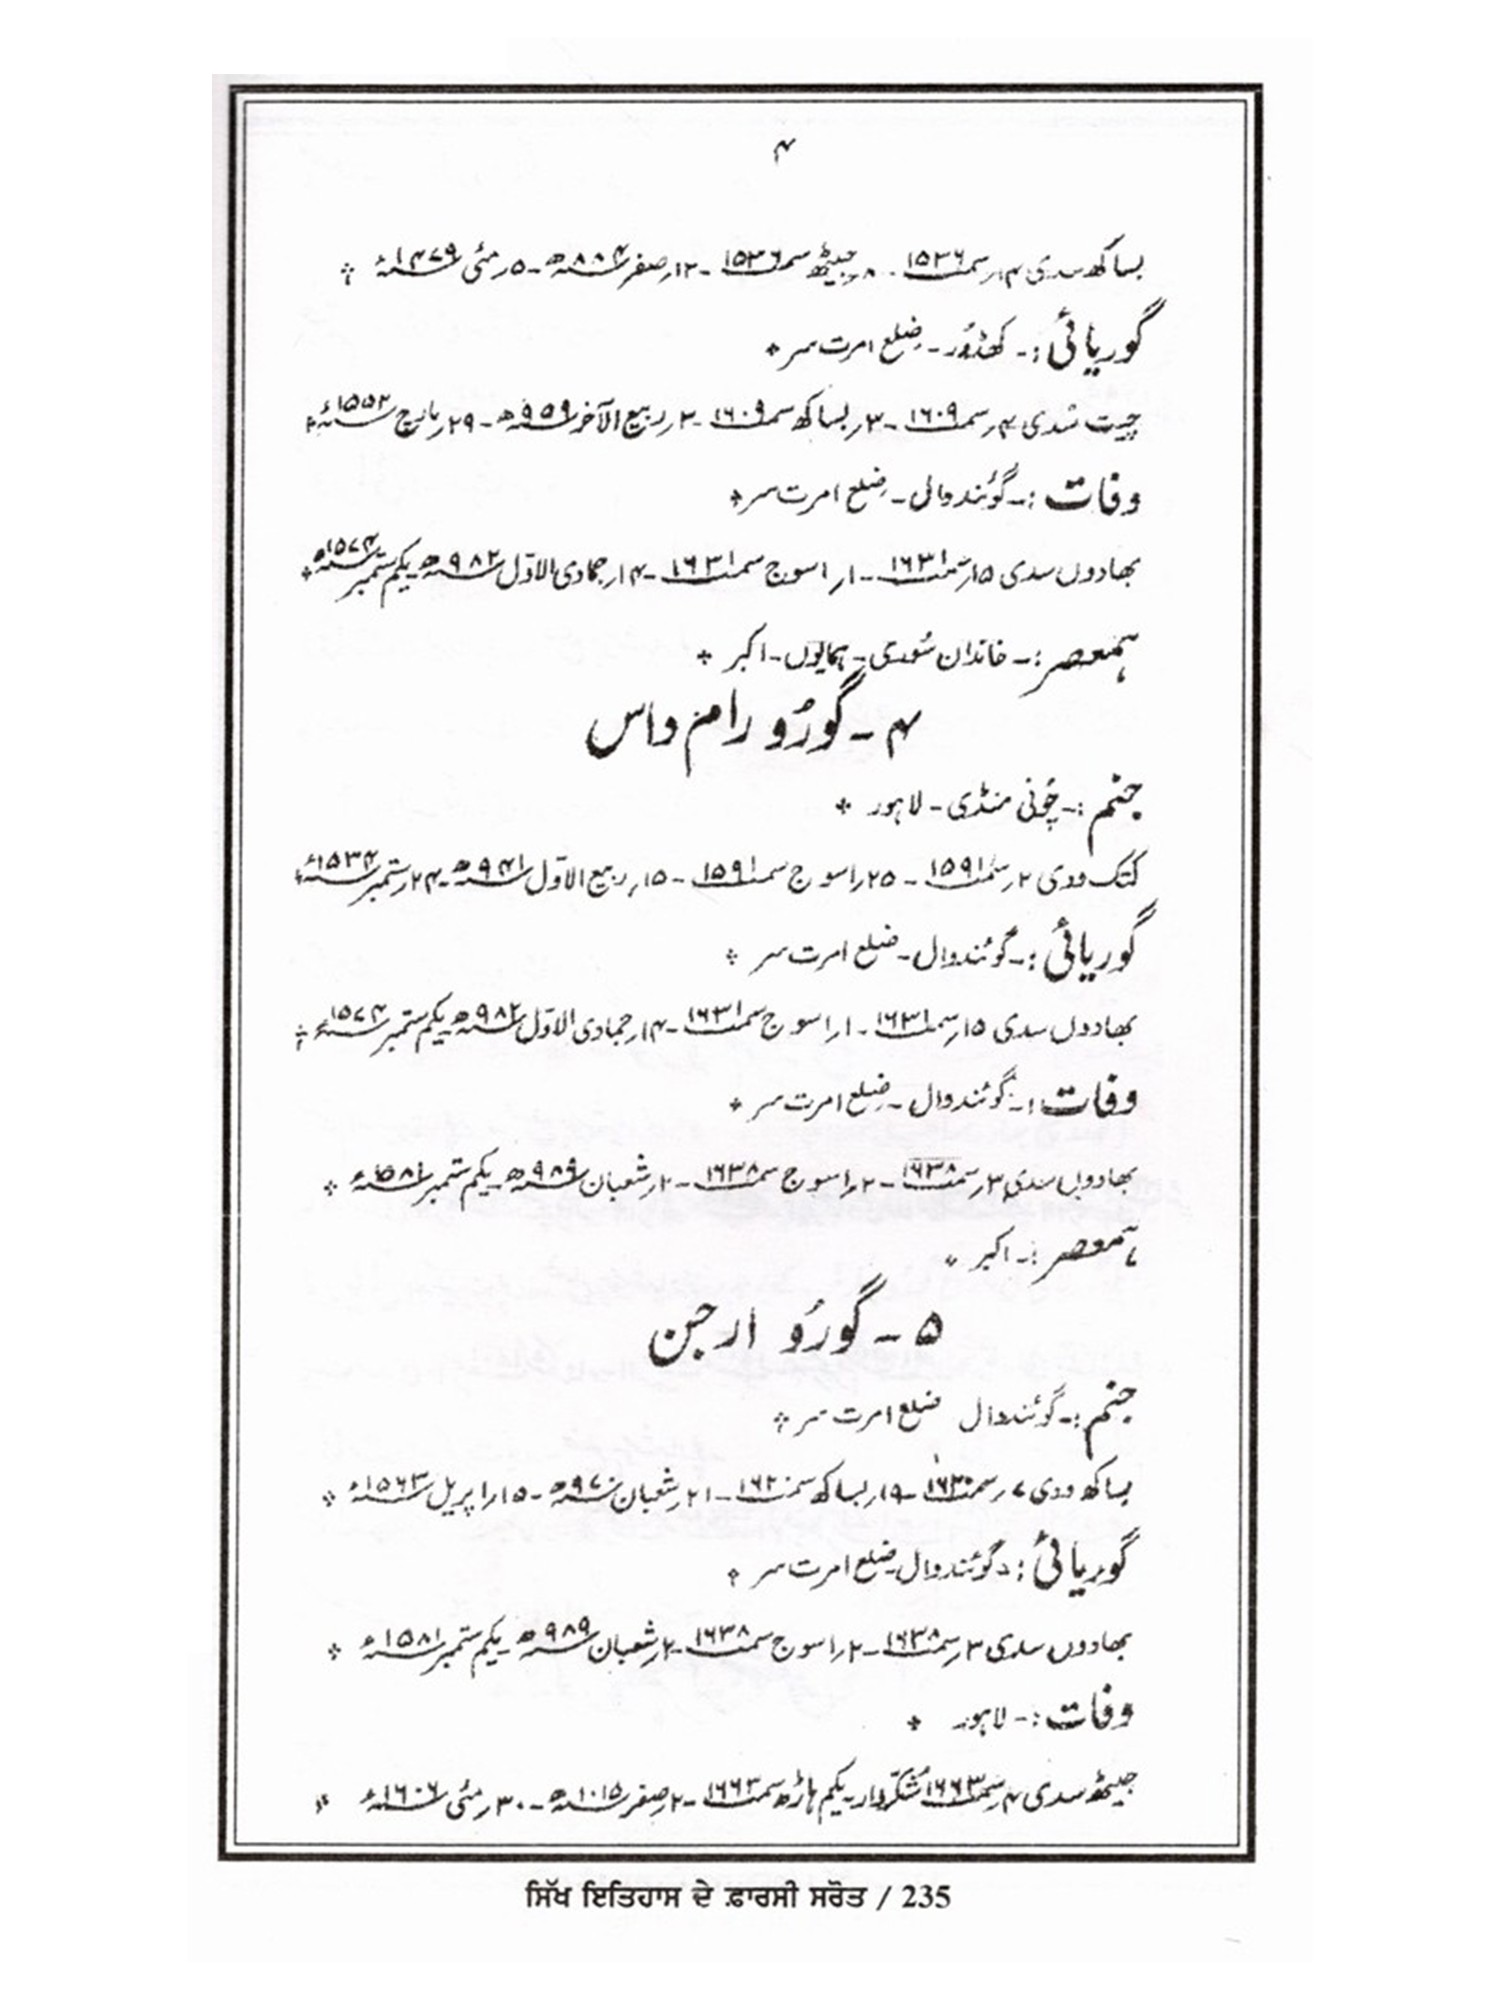 ۴
بساکھ سدی ۱۴ر سمت ۱۵۳۶ - ۸ر جیٹھ سمت ۱۵۳۶ - ۱۲ر صفر ۸۸۴ھ - ۵ر مئی ۱۴۷۹ء
گوریائی :- کھڈور - ضلع امرت سر
چیت شدی ۴ر سمت ۱۶۰۹ - ۳ر بساکھ سمت ۱۶۰۹ - ۲ر ربیع الآخر ۹۵۹ھ - ۲۹ر مارچ ۱۵۵۲ء
وفات :- گوئندوال - ضلع امرت سر
بھادوں سدی ۱۵ر سمت ۱۶۳۱ - ۱ر اسوج سمت ۱۶۳۱ - ۱۴ر جمادی الاوّل ۹۸۲ھ - یکم ستمبر ۱۵۷۴ء
ہمعصر :- خاندان سُوری - ہمایوں - اکبر
۴ - گورُو رام داس
جنم :- چُونی منڈی - لاہور
کتک ودی ۲ر سمت ۱۵۹۱ - ۲۵ر اسوج سمت ۱۵۹۱ - ۱۵ر ربیع الاوّل ۹۴۱ھ - ۲۴ر ستمبر ۱۵۳۴ء
گوریائی :- گوئندوال - ضلع امرت سر
بھادوں سدی ۱۵ر سمت ۱۶۳۱ - ۱ر اسوج سمت ۱۶۳۱ - ۱۴ر جمادی الاوّل ۹۸۲ھ - یکم ستمبر ۱۵۷۴ء
وفات :- گوئندوال - ضلع امرت سر
بھادوں سدی ۳ر سمت ۱۶۳۸ - ۲ر اسوج سمت ۱۶۳۸ - ۲ر شعبان ۹۸۹ھ - یکم ستمبر ۱۵۸۱ء
ہمعصر :- اکبر
۵ - گورُو ارجن
جنم :- گوئندوال ضلع امرت سر
بساکھ ودی ۷ر سمت ۱۶۲۰ - ۱۹ر بساکھ سمت ۱۶۲۰ - ۲۱ر شعبان ۹۷۰ھ - ۱۵ر اپریل ۱۵۶۳ء
گوریائی :- گوئندوال ضلع امرت سر
بھادوں سدی ۳ر سمت ۱۶۳۸ - ۲ر اسوج سمت ۱۶۳۸ - ۲ر شعبان ۹۸۹ھ - یکم ستمبر ۱۵۸۱ء
وفات :- لاہور
جیٹھ سدی ۴ر سمت ۱۶۶۳ شُکروار - یکم ہاڑھ سمت ۱۶۶۳ - ۲ر صفر ۱۰۱۵ھ - ۳۰ر مئی ۱۶۰۶ء
ਸਿੱਖ ਇਤਿਹਾਸ ਦੇ ਫ਼ਾਰਸੀ ਸਰੋਤ / 235